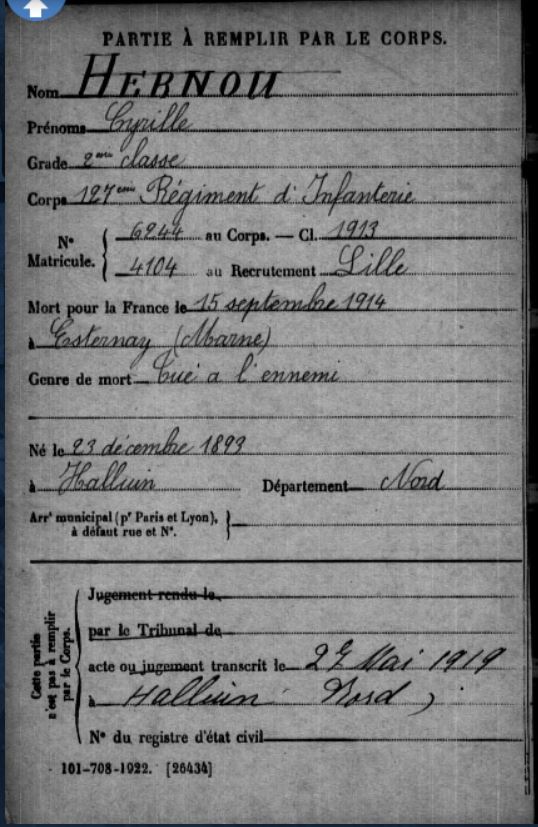 PARTIE À REMPLIR PAR LE CORPS.
Nom HERNOU
Prénoms Cyrille
Grade 2eme classe
Corps 127eme Régiment d'Infanterie
N° Matricule. { 6244 au Corps. — Cl. 1913
4104 au Recrutement Lille
Mort pour la France le 15 septembre 1914
à Esternay (Marne)
Genre de mort Tué a l'ennemi
Né le 23 décembre 1893
à Halluin Département Nord
Arrt municipal (pr Paris et Lyon), à défaut rue et N°. }
Cette partie n'est pas à remplir par le Corps.
Jugement rendu le
par le Tribunal de
acte ou jugement transcrit le 27 Mai 1919
à Halluin Nord
N° du registre d'état civil
101-708-1922. [26434]